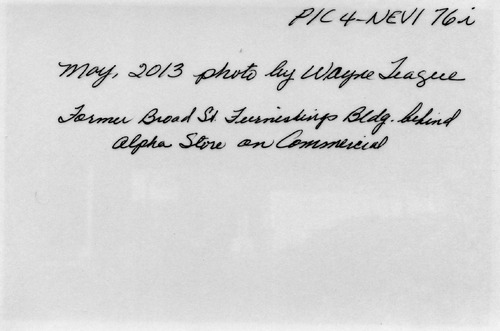 PIC 4-NEVI 76i
May, 2013 photo by Wayne Teague
Former Broad St Furnishings Bldg. behind
Alpha Store on Commercial